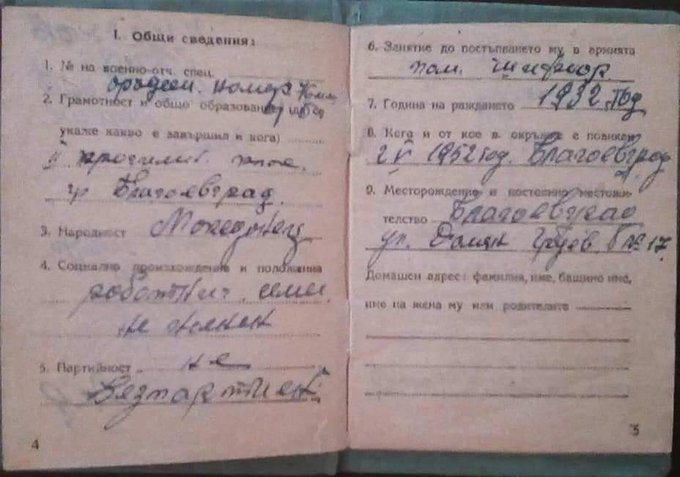 I. Общи сведения:
1. № на военно-отч. спец.
номер
2. Грамотност и общо образование
укаже какво е завършил и кога)
гр Благоевград.
3. Народност Македонец
4. Социално произхождение и положение
работник
не женен
5. Партийност не
Безпартиен
4
6. Занятие до постъпването му в армията
пом. шофьор
7. Година на раждането 1932 год
8. Кога и от кое в. окръжие е повикан
1952 год. Благоевград
9. Месторождение и постоянно местожи-
телство Благоевград
ул. Дамян Груев № 17.
Домашен адрес: фамилия, име, бащино име,
име на жена му или родителите
5